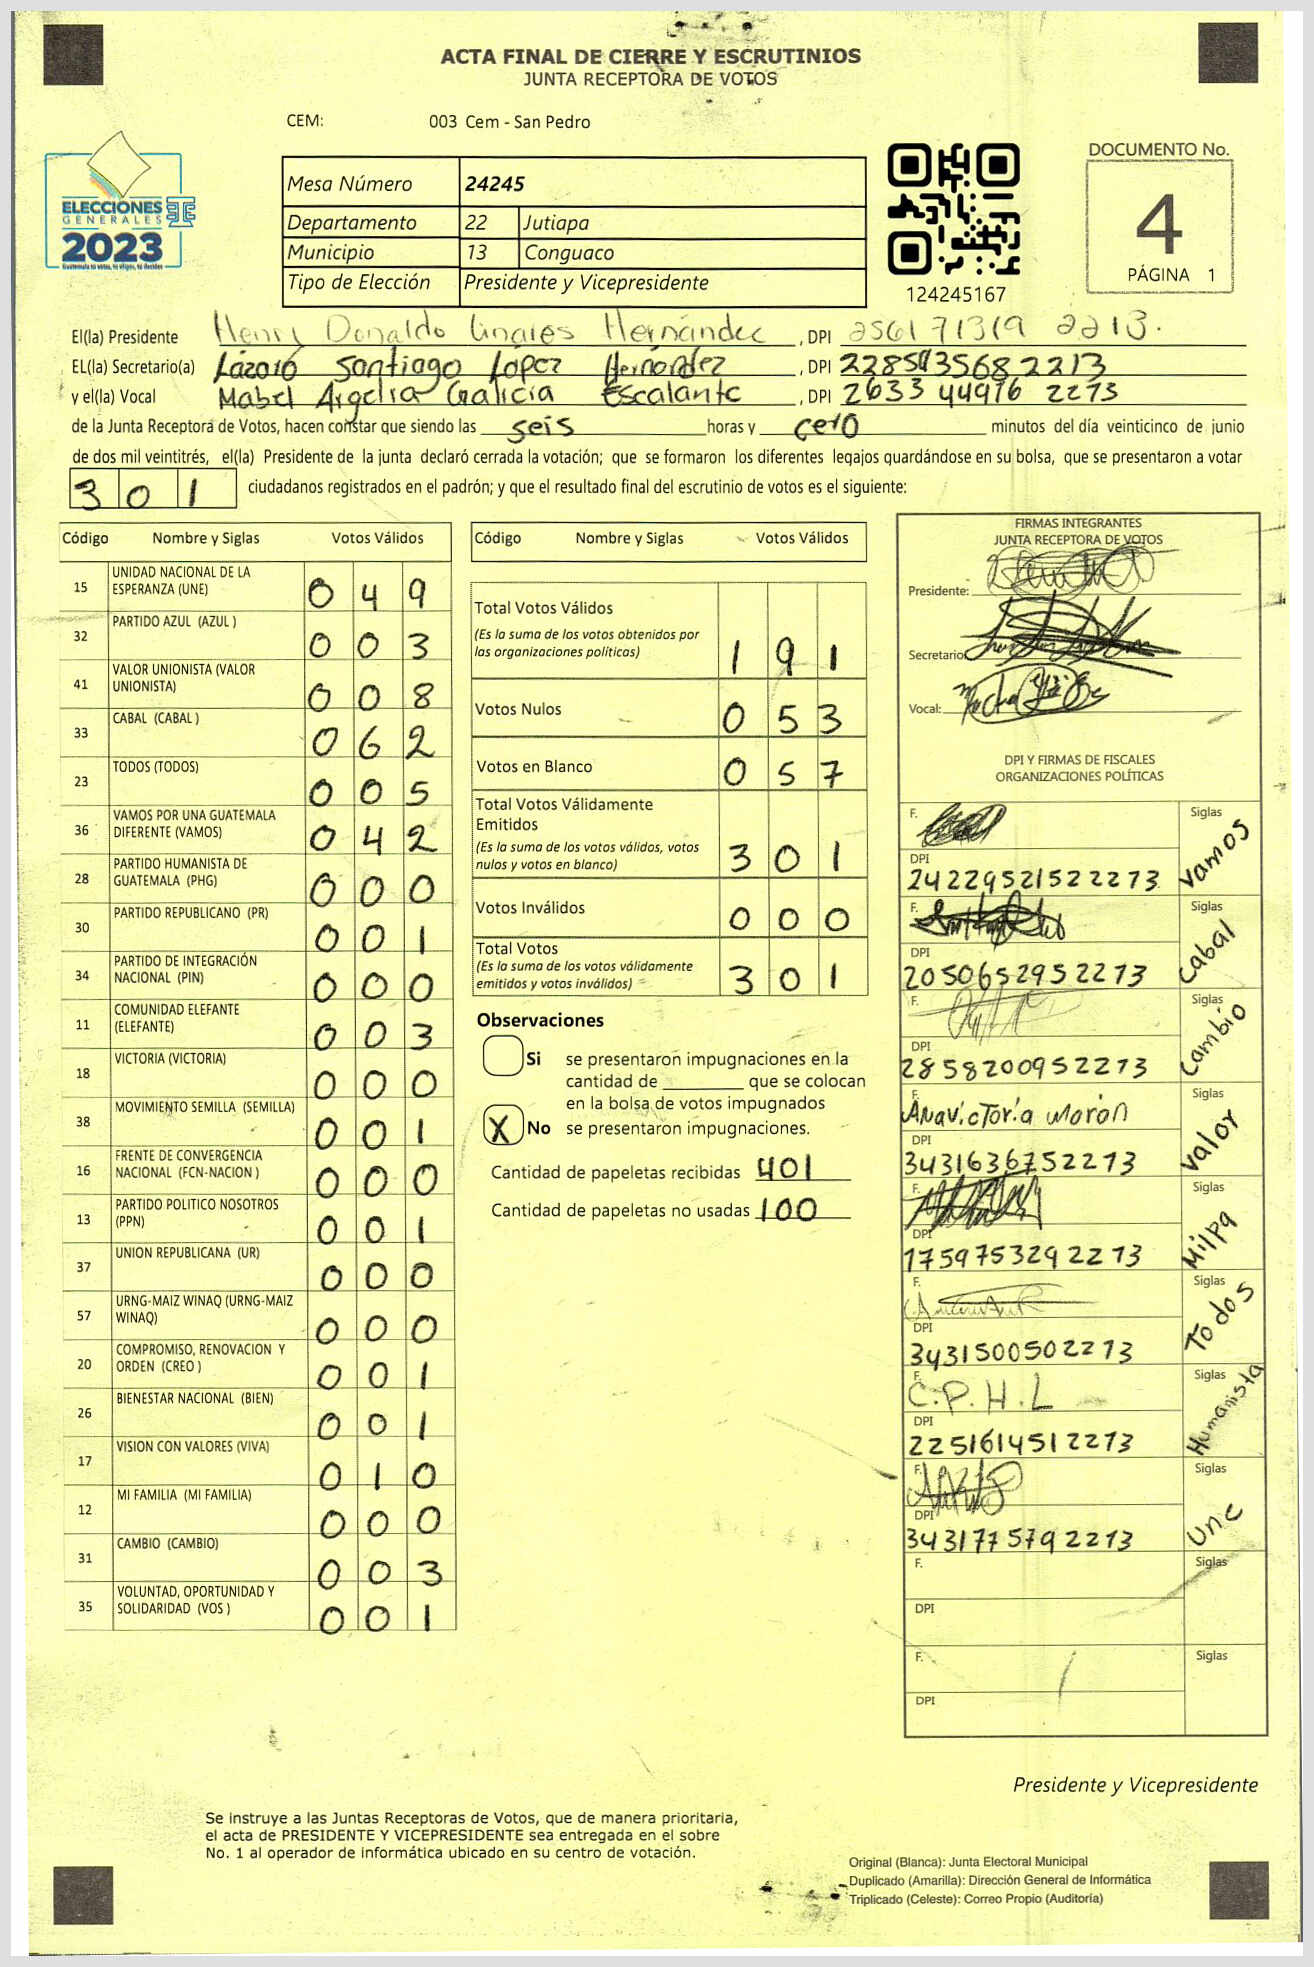 ACTA FINAL DE CIERRE Y ESCRUTINIOS
JUNTA RECEPTORA DE VOTOS
CEM: 003 Cem - San Pedro
ELECCIONES
GENERALES
2023
Guatemala tú votas, tú eliges, tú decides
TSE
Mesa Número 24245
Departamento 22 Jutiapa
Municipio 13 Conguaco
Tipo de Elección Presidente y Vicepresidente
124245167
DOCUMENTO No.
4
PÁGINA 1
El(la) Presidente Henry Donaldo Linares Hernández, DPI 256171319 2213.
EL(la) Secretario(a) Lázaro Santiago López Hernández, DPI
y el(la) Vocal Mabel Argelia Galicia Escalante, DPI 2633 44976 2273
de la Junta Receptora de Votos, hacen constar que siendo las seis horas y cero minutos del día veinticinco de junio
de dos mil veintitrés, el(la) Presidente de la junta declaró cerrada la votación; que se formaron los diferentes legajos guardándose en su bolsa, que se presentaron a votar
301 ciudadanos registrados en el padrón; y que el resultado final del escrutinio de votos es el siguiente:
Código Nombre y Siglas Votos Válidos
15 UNIDAD NACIONAL DE LA ESPERANZA (UNE) 049
32 PARTIDO AZUL (AZUL ) 003
41 VALOR UNIONISTA (VALOR UNIONISTA) 008
33 CABAL (CABAL ) 062
23 TODOS (TODOS) 005
36 VAMOS POR UNA GUATEMALA DIFERENTE (VAMOS) 042
28 PARTIDO HUMANISTA DE GUATEMALA (PHG) 000
30 PARTIDO REPUBLICANO (PR) 001
34 PARTIDO DE INTEGRACIÓN NACIONAL (PIN) 000
11 COMUNIDAD ELEFANTE (ELEFANTE) 003
18 VICTORIA (VICTORIA) 000
38 MOVIMIENTO SEMILLA (SEMILLA) 001
16 FRENTE DE CONVERGENCIA NACIONAL (FCN-NACION ) 000
13 PARTIDO POLITICO NOSOTROS (PPN) 001
37 UNION REPUBLICANA (UR) 000
57 URNG-MAIZ WINAQ (URNG-MAIZ WINAQ) 000
20 COMPROMISO, RENOVACION Y ORDEN (CREO ) 001
26 BIENESTAR NACIONAL (BIEN) 001
17 VISION CON VALORES (VIVA) 010
12 MI FAMILIA (MI FAMILIA) 000
31 CAMBIO (CAMBIO) 003
35 VOLUNTAD, OPORTUNIDAD Y SOLIDARIDAD (VOS ) 001
Código Nombre y Siglas Votos Válidos
Total Votos Válidos
(Es la suma de los votos obtenidos por
las organizaciones políticas) 191
Votos Nulos 053
Votos en Blanco 057
Total Votos Válidamente
Emitidos
(Es la suma de los votos válidos, votos
nulos y votos en blanco) 301
Votos Inválidos 000
Total Votos
(Es la suma de los votos válidamente
emitidos y votos inválidos) 301
Observaciones
Si se presentaron impugnaciones en la
cantidad de ________ que se colocan
en la bolsa de votos impugnados
X No se presentaron impugnaciones.
Cantidad de papeletas recibidas 401
Cantidad de papeletas no usadas 100
FIRMAS INTEGRANTES
JUNTA RECEPTORA DE VOTOS
Presidente:
Secretario
Vocal:
DPI Y FIRMAS DE FISCALES
ORGANIZACIONES POLÍTICAS
F. Siglas Vamos
DPI 242295215 2273
F. Siglas Cabal
DPI 205065295 2273
F. Siglas Cambio
DPI 285820095 2273
F. Anavictoria Morán Siglas Valor
DPI 343163675 2273
F. Siglas Milpa
DPI 175975329 2273
F. Siglas Todos
DPI 343150050 2273
F. C.P.H.L Siglas Humanista
DPI 225161451 2273
F. Siglas Une
DPI 343177579 2273
F. Siglas
DPI
F. Siglas
DPI
Presidente y Vicepresidente
Se instruye a las Juntas Receptoras de Votos, que de manera prioritaria,
el acta de PRESIDENTE Y VICEPRESIDENTE sea entregada en el sobre
No. 1 al operador de informática ubicado en su centro de votación.
Original (Blanca): Junta Electoral Municipal
Duplicado (Amarilla): Dirección General de Informática
Triplicado (Celeste): Correo Propio (Auditoría)